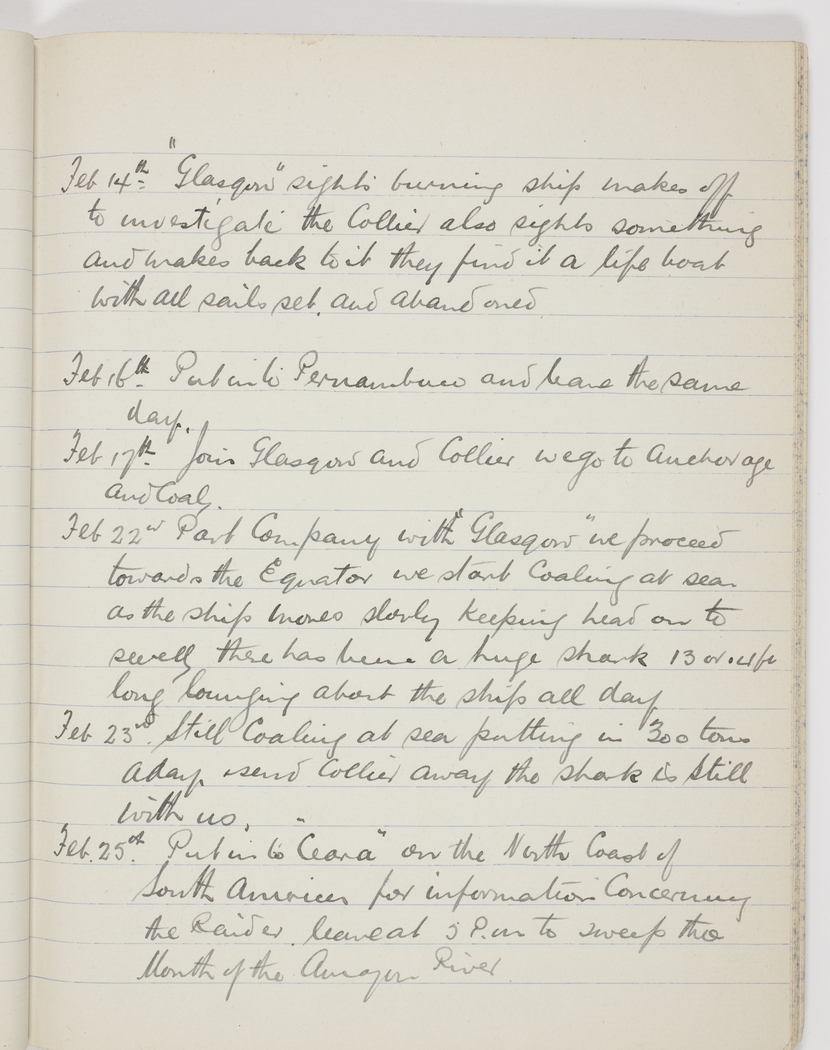 Feb 14th "Glasgow" sights burning ship makes off
to investigate the Collier also sights something
and makes back to it they find it a life boat
with all sails set. and abandoned
Feb 16th Put in to Pernambuco and leave the same
day.
Feb 17th Join Glasgow and Collier we go to Anchorage
and Coal.
Feb 22nd Part Company with "Glasgow" we proceed
towards the Equator we start Coaling at sea
as the ship moves slowly keeping head on to
swell, there has been a huge shark 13 or 14 ft
long lounging about the ship all day
Feb 23rd. Still Coaling at sea putting in 300 tons
a day, & send Collier away the shark is still
with us.
Feb. 25th. Put in to "Ceara" on the North Coast of
South America for information Concerning
the Raider. leave at 5 P.m to sweep the
Mouth of the Amazon River